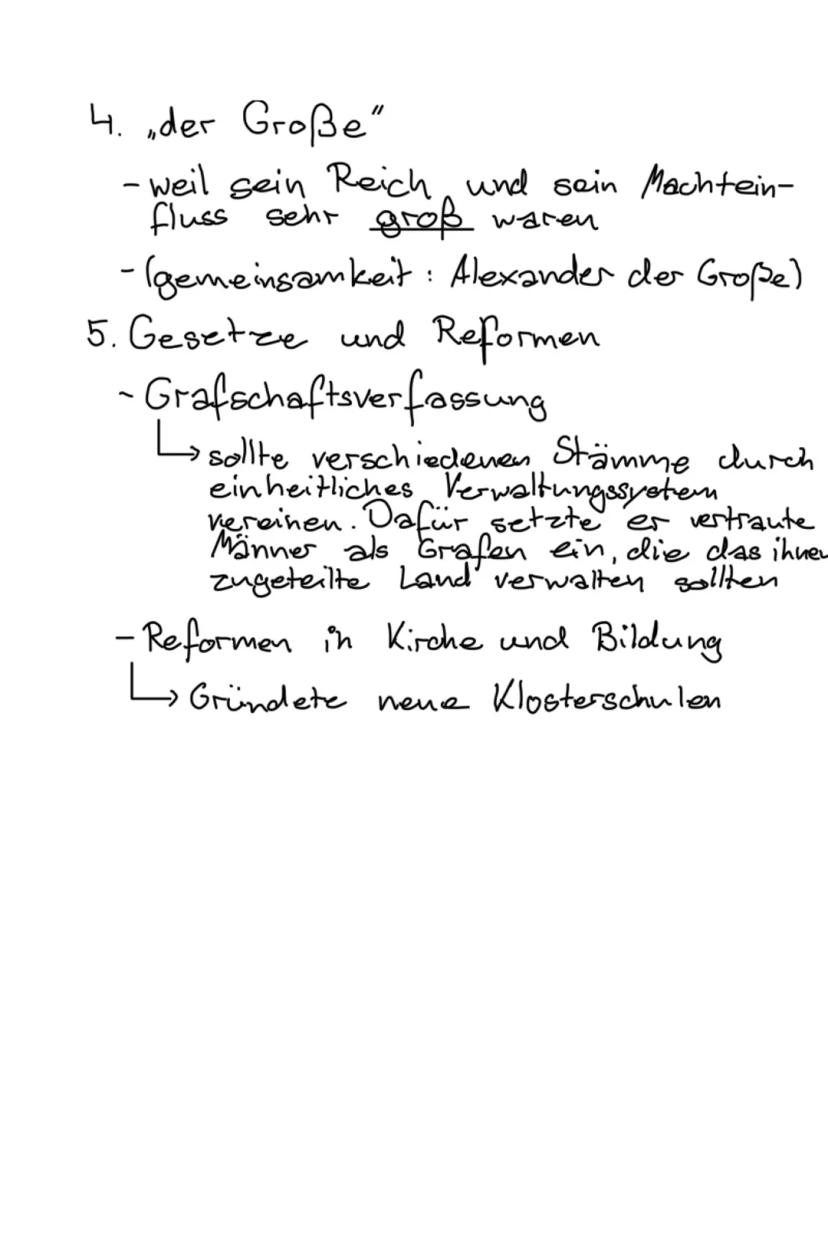 4. „der Große"
- weil sein Reich und sein Machtein-
fluss sehr groß waren
- (gemeinsamkeit : Alexander der Große)
5. Gesetze und Reformen
- Grafschaftsverfassung
↳ sollte verschiedenen Stämme durch
einheitliches Verwaltungssystem
vereinen. Dafür setzte er vertraute
Männer als Grafen ein, die das ihnen
zugeteilte Land verwalten sollten
- Reformen in Kirche und Bildung
↳ Gründete neue Klosterschulen